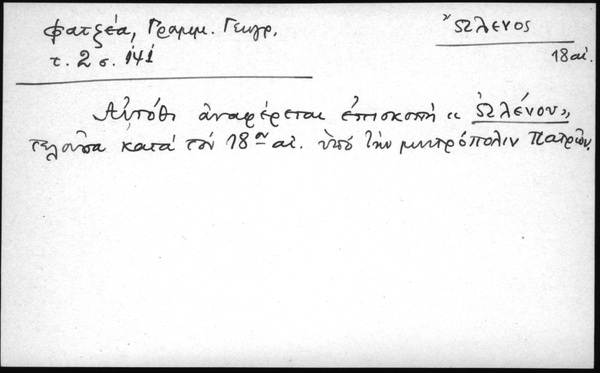 Φατζέα, Γραμμ. Γεωγρ.
τ. 2 σ. 141
Ὤλενος
18 αἰ.
Αὐτόθι ἀναφέρεται ἐπισκοπὴ « Ὠλένου»,
τελοῦσα κατά τόν 18ον αἰ. ὑπό τήν μητρόπολιν Πατρῶν.